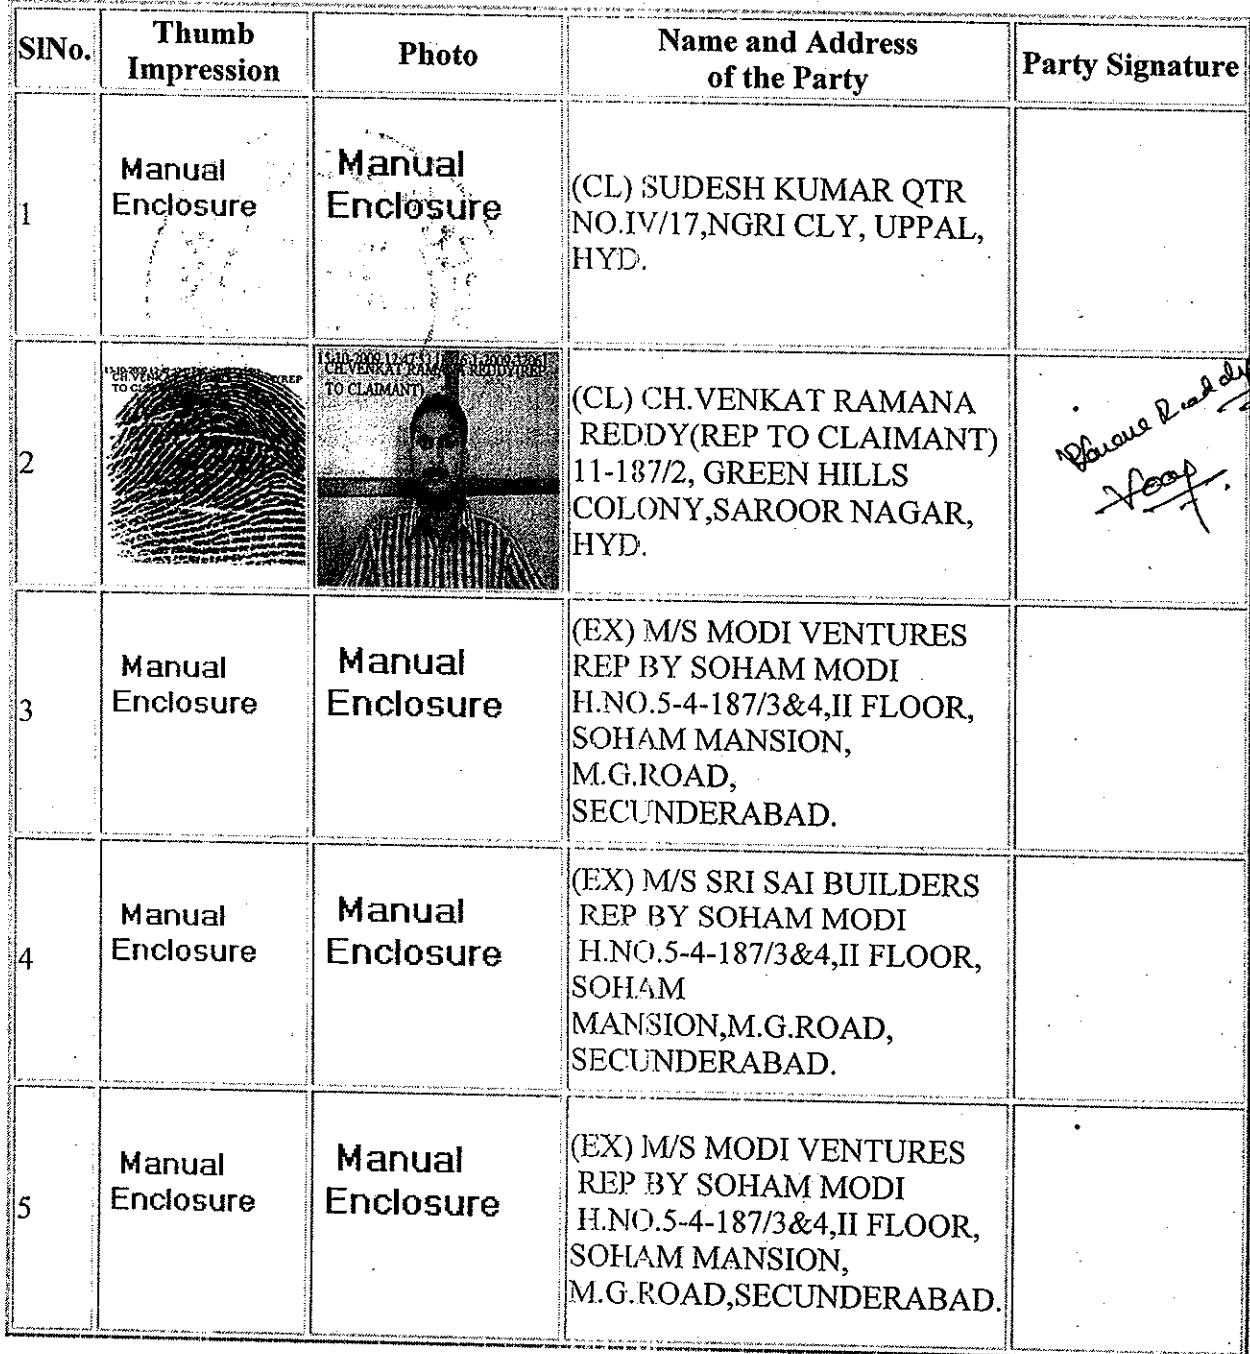 SlNo.
Thumb
Impression
Photo
Name and Address
of the Party
Party Signature
1
Manual
Enclosure
Manual
Enclosure
(CL) SUDESH KUMAR QTR
NO.IV/17,NGRI CLY, UPPAL,
HYD.
2
TO CLAIMANT)
(CL) CH.VENKAT RAMANA
REDDY(REP TO CLAIMANT)
11-187/2, GREEN HILLS
COLONY,SAROOR NAGAR,
HYD.
Reddy
3
Manual
Enclosure
Manual
Enclosure
(EX) M/S MODI VENTURES
REP BY SOHAM MODI
H.NO.5-4-187/3&4,II FLOOR,
SOHAM MANSION,
M.G.ROAD,
SECUNDERABAD.
4
Manual
Enclosure
Manual
Enclosure
(EX) M/S SRI SAI BUILDERS
REP BY SOHAM MODI
H.NO.5-4-187/3&4,II FLOOR,
SOHAM
MANSION,M.G.ROAD,
SECUNDERABAD.
5
Manual
Enclosure
Manual
Enclosure
(EX) M/S MODI VENTURES
REP BY SOHAM MODI
H.NO.5-4-187/3&4,II FLOOR,
SOHAM MANSION,
M.G.ROAD,SECUNDERABAD.